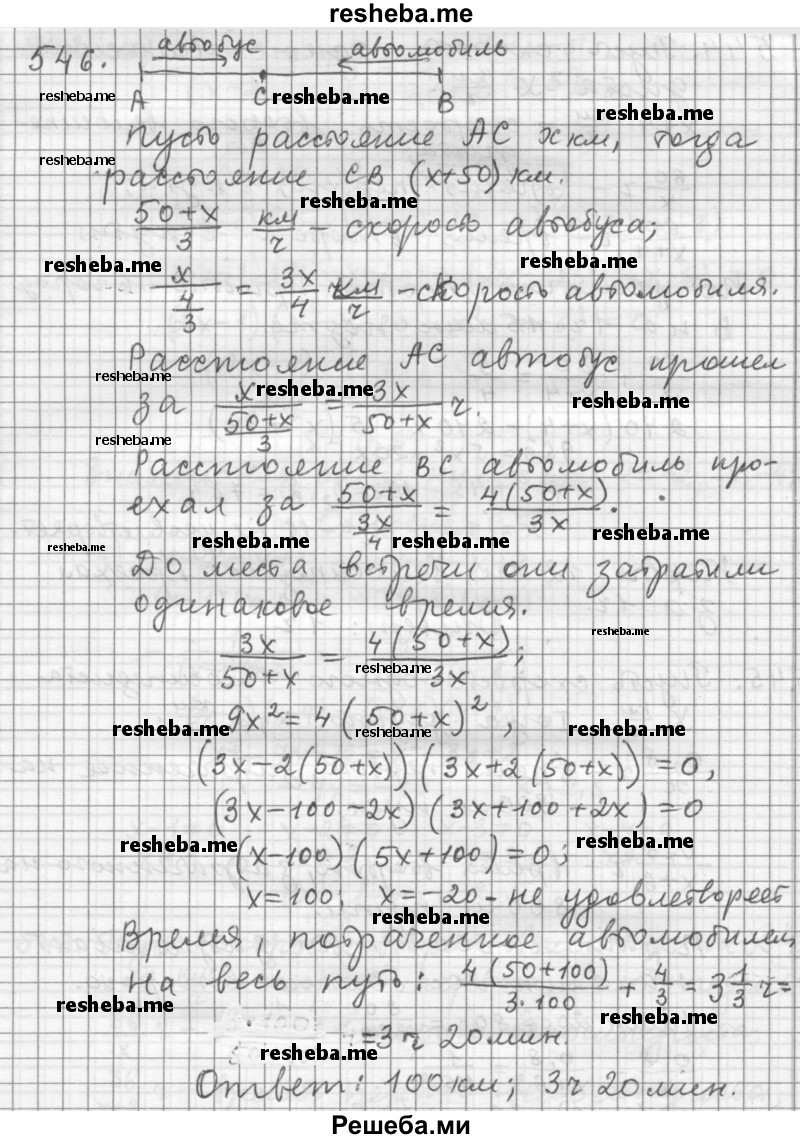 resheba.me
546. автобус автомобиль
resheba.me A C resheba.me B resheba.me
Пусть расстояние AC x км, тогда
resheba.me
расстояние CB (x+50) км.
resheba.me
50+x/3 км/ч - скорость автобуса;
resheba.me resheba.me
x/(4/3) = 3x/4 км/ч - скорость автомобиля.
Расстояние AC автобус прошел
resheba.me resheba.me
за x/((50+x)/3) = 3x/(50+x) ч. resheba.me
resheba.me
Расстояние BC автомобиль про-
ехал за (50+x)/(3x/4) = 4(50+x)/3x.
resheba.me resheba.me resheba.me resheba.me
До места встречи они затратили
одинаковое время.
resheba.me
3x/(50+x) = 4(50+x)/3x;
resheba.me
9x² = 4(50+x)²,
resheba.me resheba.me resheba.me
(3x-2(50+x))(3x+2(50+x))=0,
(3x-100-2x)(3x+100+2x)=0
resheba.me resheba.me
(x-100)(5x+100)=0;
x=100; x=-20 - не удовлетворяет
resheba.me
Время, потраченное автомобилем
на весь путь: 4(50+100)/3·100 + 4/3 = 3 1/3 ч =
resheba.me resheba.me
=3 ч 20 мин.
resheba.me
Ответ: 100 км; 3 ч 20 мин.
Решеба.ми